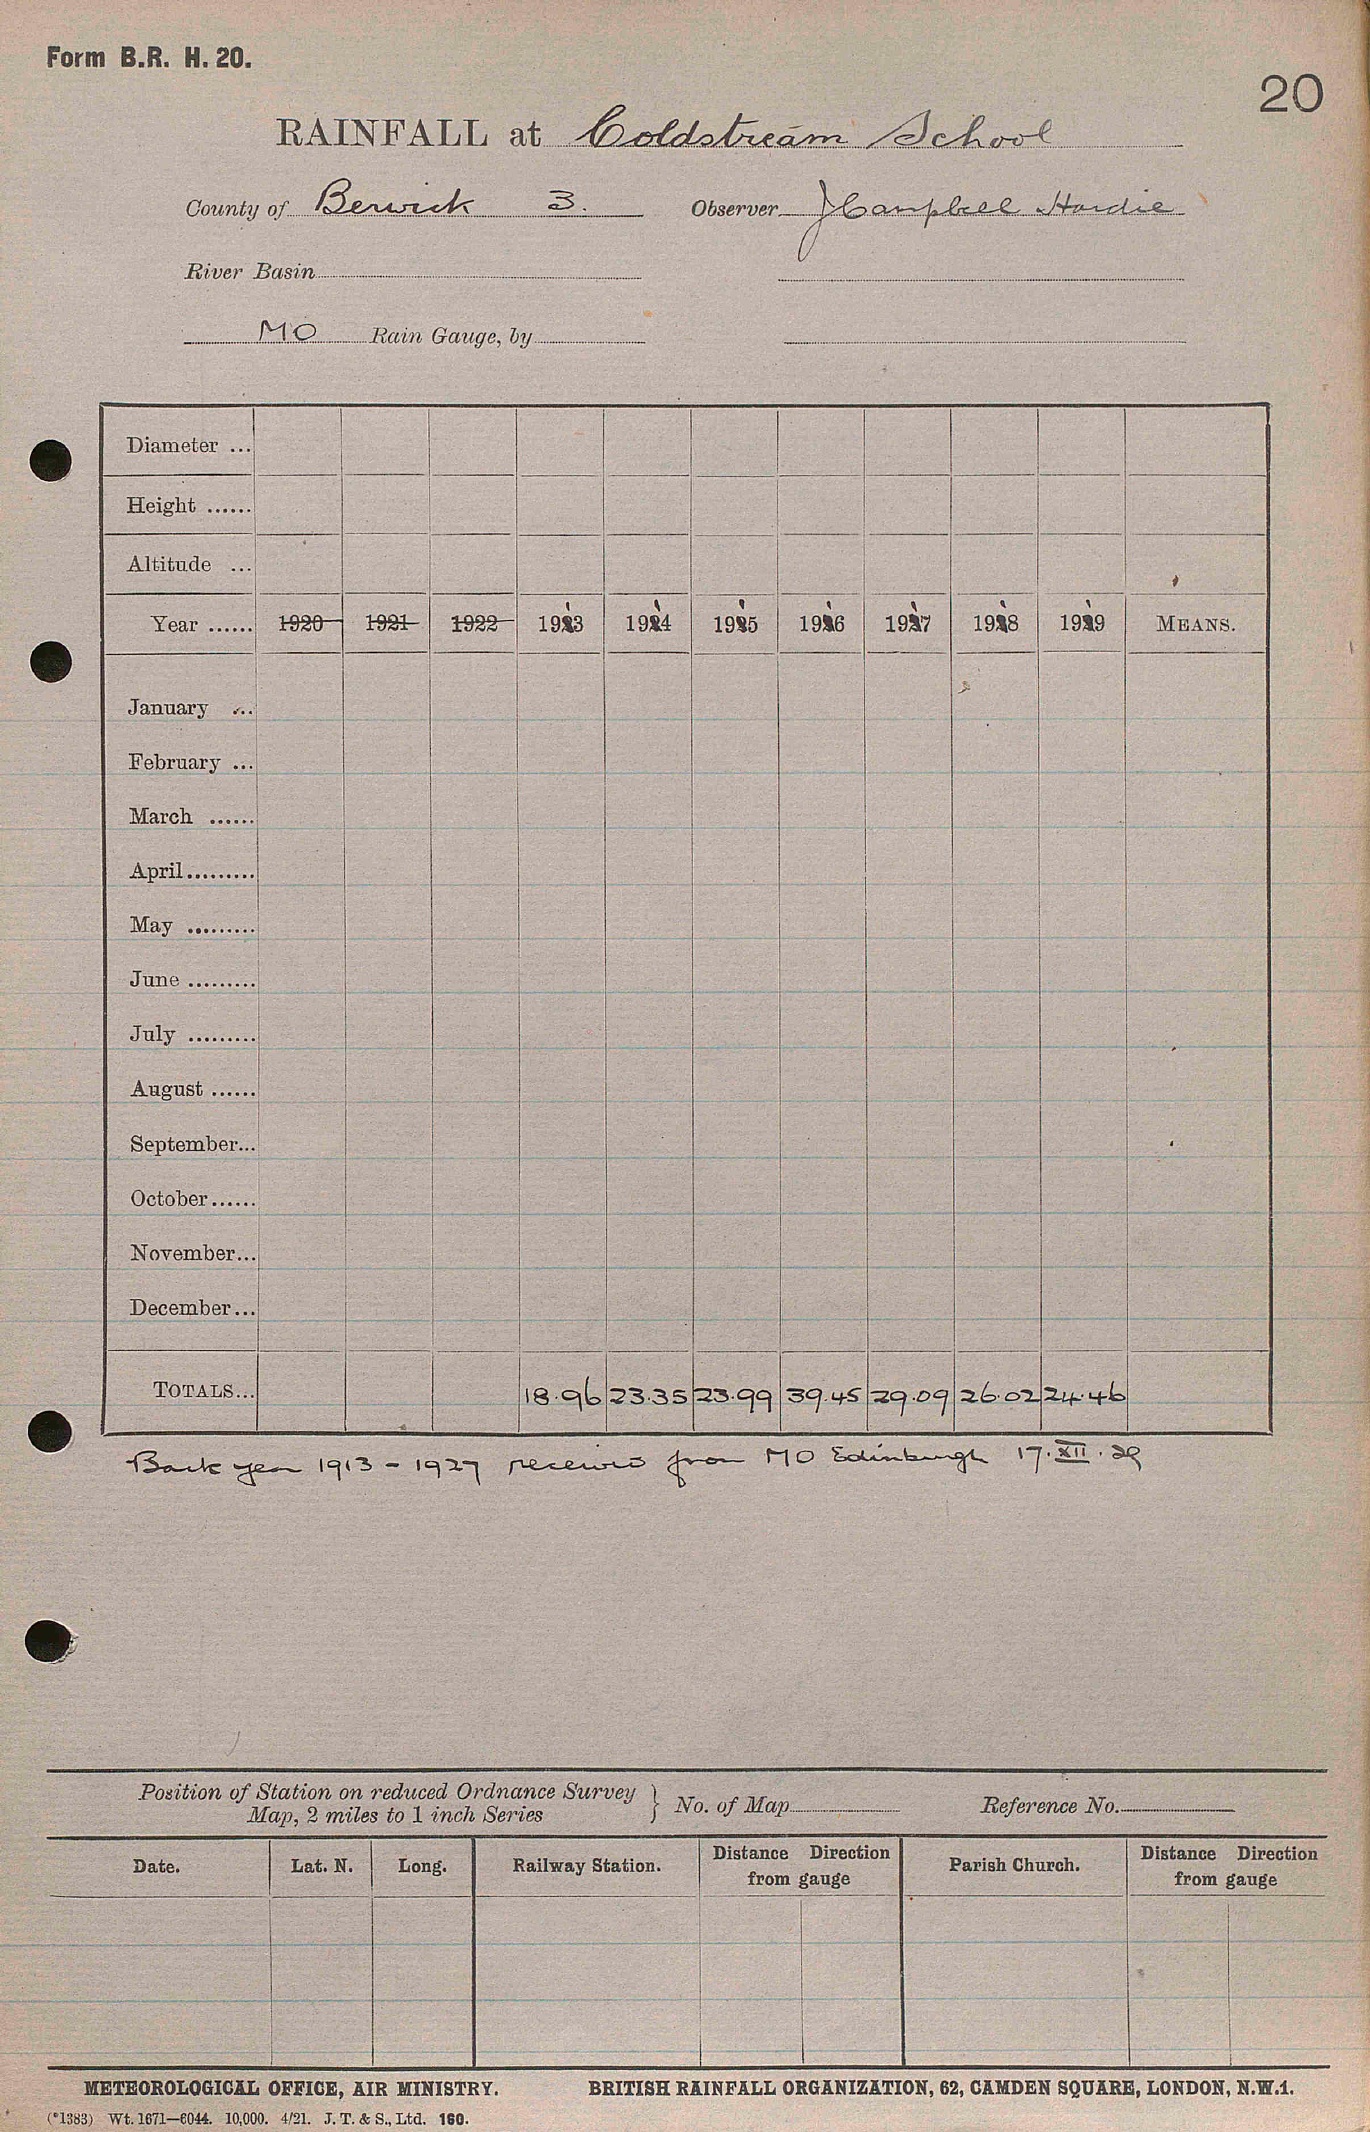 Form B.R. H. 20.
20
RAINFALL at Coldstream School
County of Berwick 3. Observer J Campbell Hardie
River Basin
MO Rain Gauge, by
Diameter ...
Height ......
Altitude ...
Year ...... 1920 1921 1922 1913 1914 1915 1916 1917 1918 1919 MEANS.
January ...
February ...
March ......
April.........
May .........
June .........
July .........
August ......
September...
October......
November...
December...
TOTALS... 18.96 23.35 23.99 39.45 29.09 26.02 24.46
Back year 1913 - 1927 received from MO Edinburgh 17.XII.29
Position of Station on reduced Ordnance Survey
Map, 2 miles to 1 inch Series } No. of Map Reference No.
Date. Lat. N. Long. Railway Station. Distance Direction from gauge Parish Church. Distance Direction from gauge
METEOROLOGICAL OFFICE, AIR MINISTRY. BRITISH RAINFALL ORGANIZATION, 62, CAMDEN SQUARE, LONDON, N.W.1.
(*1383) Wt. 1671—6044. 10,000. 4/21. J. T. & S., Ltd. 160.